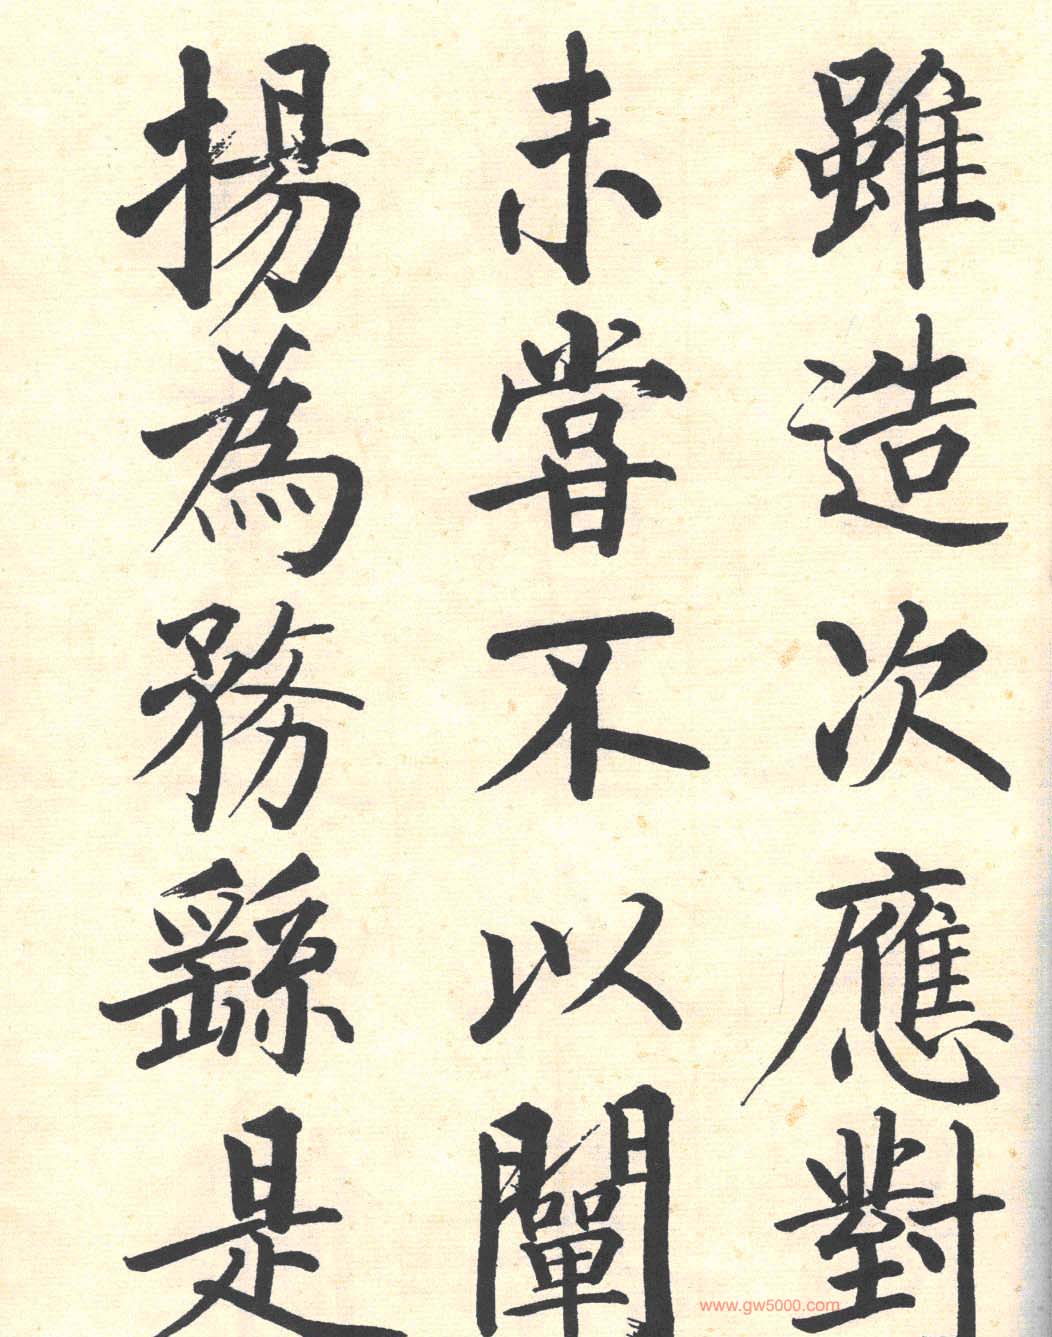 雖造次應對
未甞不以闡
揚為務繇是
www.gw5000.com